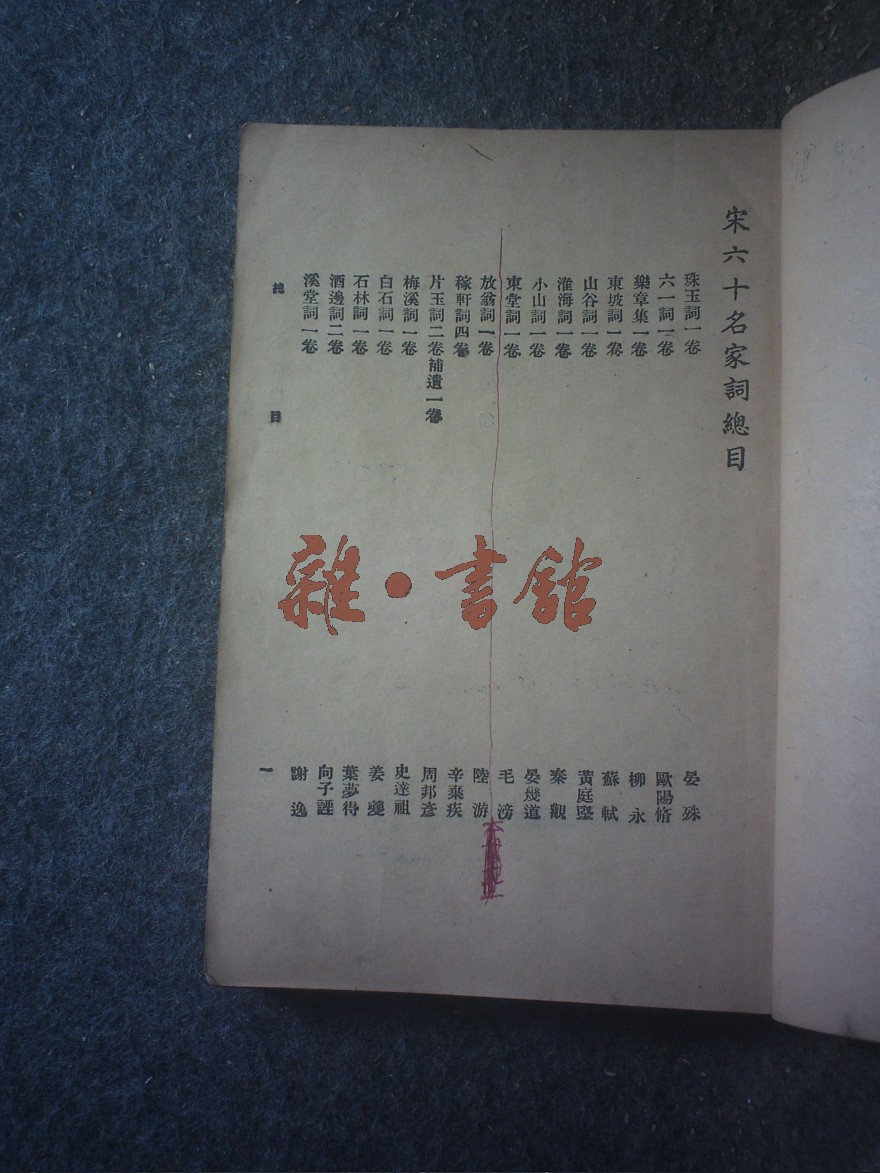 宋六十名家詞總目
珠玉詞一卷 晏殊
六一詞一卷 歐陽脩
樂章集一卷 柳永
東坡詞一卷 蘇軾
山谷詞一卷 黃庭堅
淮海詞一卷 秦觀
小山詞一卷 晏幾道
東堂詞一卷 毛滂
放翁詞一卷 陸游
稼軒詞四卷 辛棄疾
片玉詞二卷補遺一卷 周邦彥
梅溪詞一卷 史達祖
白石詞一卷 姜夔
石林詞一卷 葉夢得
酒邊詞二卷 向子諲
溪堂詞一卷 謝逸
總目 一
雜·書館